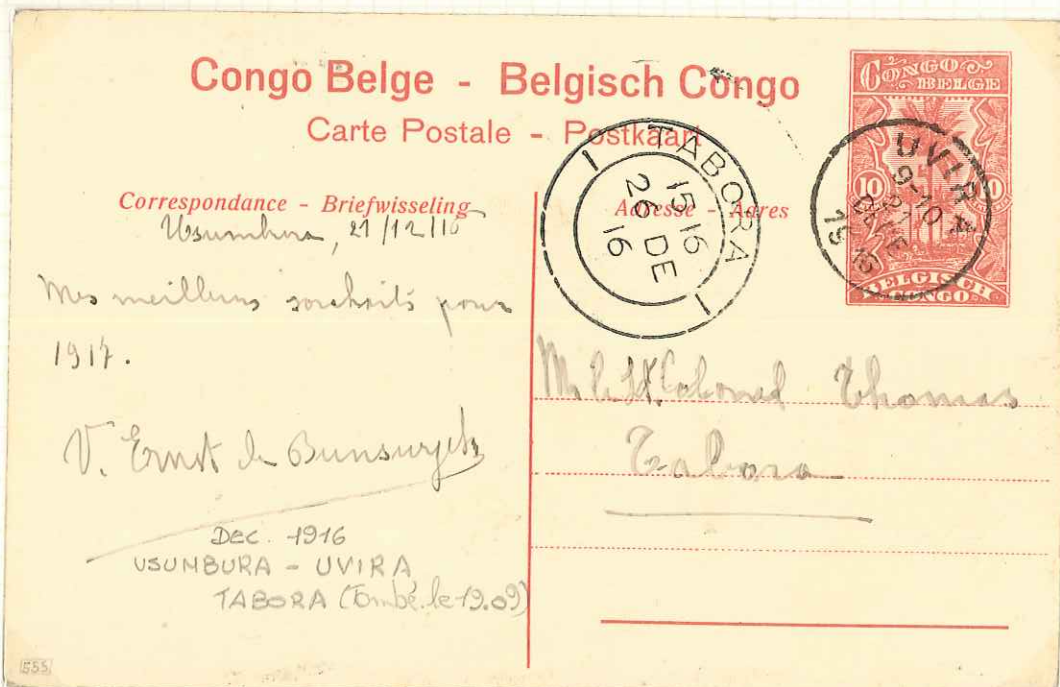 Congo Belge - Belgisch Congo
Carte Postale - Postkaart
CONGO
BELGE
10
BELGISCH
CONGO
UVIRA
9-10
21
TABORA
15 16
26 DE
16
Correspondance - Briefwisseling
Usumbura, 21/12/16
Mes meilleurs souhaits pour
1917.
V. Ernst de Bunswyck
Dec. 1916
USUMBURA - UVIRA
TABORA (Tombé le 19.09)
Adresse - Adres
M. le Lt. Colonel Thomas
Tabora
555